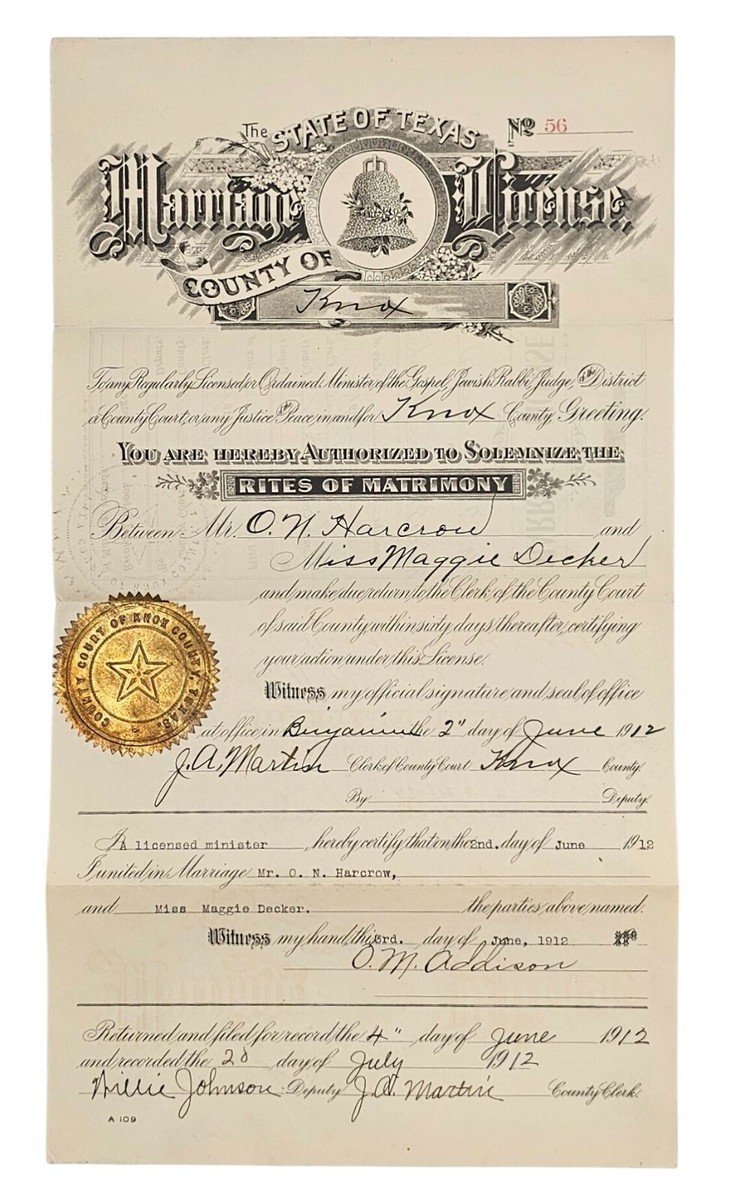 The STATE OF TEXAS
No 56
Marriage License.
COUNTY OF
Knox
To any Regularly Licensed or Ordained Minister of the Gospel, Jewish Rabbi, Judge, of the District
a County Court, or any Justice of the Peace, in and for Knox County, Greeting.
YOU ARE HEREBY AUTHORIZED TO SOLEMNIZE THE
RITES OF MATRIMONY
Between Mr. O. N. Harcrow and
Miss Maggie Decker
and make due return to the Clerk of the County Court
of said County within sixty days thereafter, certifying
your action under this License.
COUNTY COURT OF KNOX COUNTY, TEXAS
Witness my official signature and seal of office
at office in Benjamin the 2" day of June 1912
J. A. Martin Clerk of County Court Knox County.
By Deputy.
I, A licensed minister, hereby certify that on the 2nd. day of June 1912
I united in Marriage Mr. O. N. Harcrow,
and Miss Maggie Decker. the parties above named.
Witness my hand, this 3rd. day of June, 1912
O. M. Addison
Returned and filed for record the 4" day of June 1912
and recorded the day of July 1912
Willie Johnson Deputy J. A. Martin County Clerk.
A 109